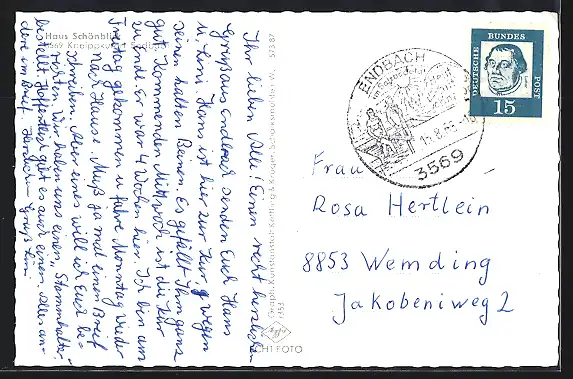 Haus Schönblick
3569 Kneippkurort Endbach
Ihr lieben Alle! Einen recht herzlichen
Gruß aus Endbach senden Euch Hans
u. Hans ist hier zur Kur, wegen
seinen kalten Beinen. Es gefällt Ihm ganz
gut. Kommenden Mittwoch ist die Kur
zu Ende. er war 4 Wochen hier. Ich bin am
Freitag gekommen u. fahre Montag wieder
Nach Hause. Muß ja mal einen Brief
schreiben. Aber eines will ich Euch be-
richten. Wir haben uns einen "Stammhalter"
bestellt. Hoffentlich gibt es auch einen. Alles an-
dere im Brief. Herzlichen Gruß
573 87
Graph. Kunstanstalt Kettling & Krüger, Schalksmühle i. W.
Agfa
ECHT FOTO
ENDBACH
3569
DEUTSCHE
BUNDES
POST
15
Frau
Rosa Hertlein
8853 Wemding
Jakobeniweg 2